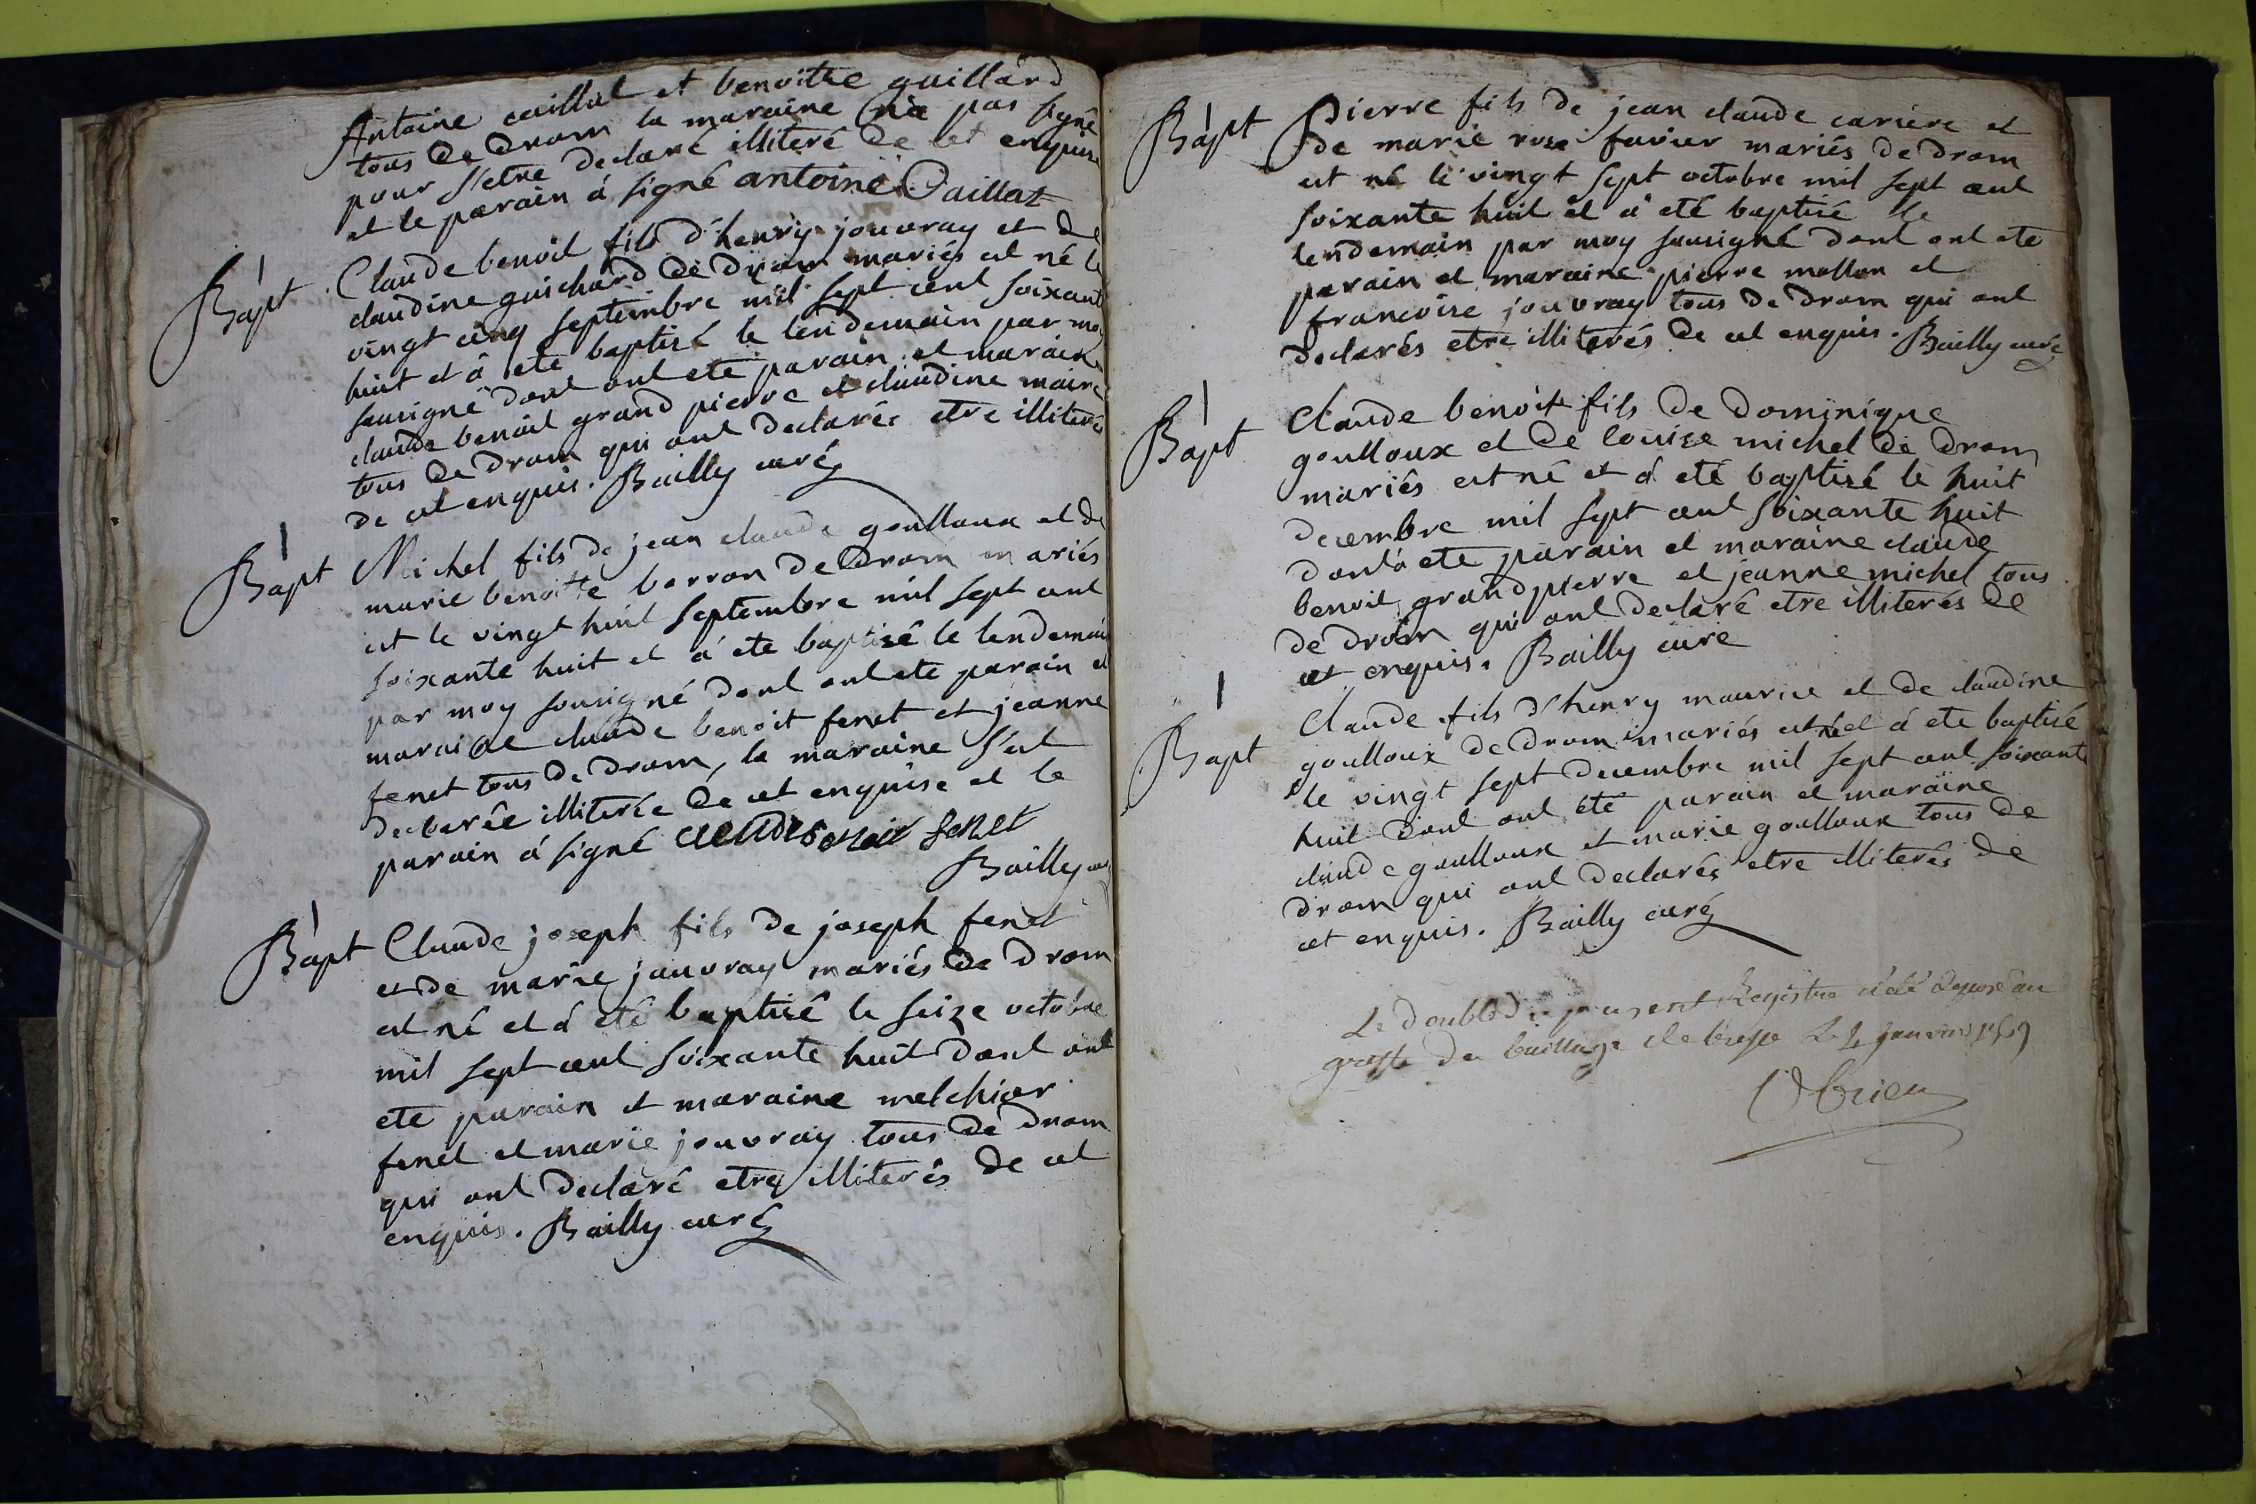 Antoine caillat et benoitte guillard
tous de drom la maraine n'a pas signé
pour s'etre declaré illiteré de cet enquise
et le parain á signé antoine Caillat
Bapt
Claude benoit fils d'henry jouvray et de
claudine guichard de drom mariés est né le
vingt cinq septembre mil sept cent soixante
huit et á eté baptisé le lendemain par moy
sousigné dont ont eté parain et maraine
claude benoit grand pierre et claudine maire
tous de drom qui ont declarés etre illiterés
de cet enquis. Bailly curé
Bapt
Michel fils de jean claude goulloux et de
marie benoitte borron de drom mariés
est le vingt huit septembre mil sept cent
soixante huit et á eté baptisé le lendemain
par moy sousigné dont ont eté parain et
maraine claude benoit fenet et jeanne
fenet tous de drom, la maraine s'est
declarée illiterée de cet enquise et le
parain á signé claude benoit fenet
Bailly curé
Bapt
Claude joseph fils de joseph fenet
et de marie jouvray mariés de drom
est né et á eté baptisé le seize octobre
mil sept cent soixante huit dont ont
eté parain et maraine melchior
fenet et marie jouvray tous de drom
qui ont declaré etre illiterés de cet
enquis. Bailly curé
Bapt
Pierre fils de jean claude cariere et
de marie rose favier mariés de drom
est né le vingt sept octobre mil sept cent
soixante huit et á eté baptisé le
lendemain par moy sousigné dont ont eté
parain et maraine pierre mollon et
francoise jouvray tous de drom qui ont
declarés etre illiterés de cet enquis. Bailly curé
Bapt
Claude benoit fils de dominique
goulloux et de louise michel de drom
mariés est né et á eté baptisé le huit
decembre mil sept cent soixante huit
dont á eté parain et maraine claude
benoit grandpierre et jeanne michel tous
de drom qui ont declaré etre illiterés de
cet enquis. Bailly curé
Bapt
Claude fils d'henry maurice et de claudine
goulloux de drom mariés est né et á eté baptisé
le vingt sept decembre mil sept cent soixante
huit dont ont eté parain et maraine
claude goulloux et marie goulloux tous de
drom qui ont declarés etre illiterés de
cet enquis. Bailly curé
Le double du present Registre a été deposé au
greffe du bailliage de bresse Le 4 janvier 1769